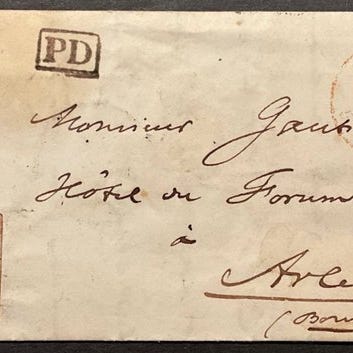 PD
Monsieur Gaus
Hôtel du Forum
à
Arle
(Bou